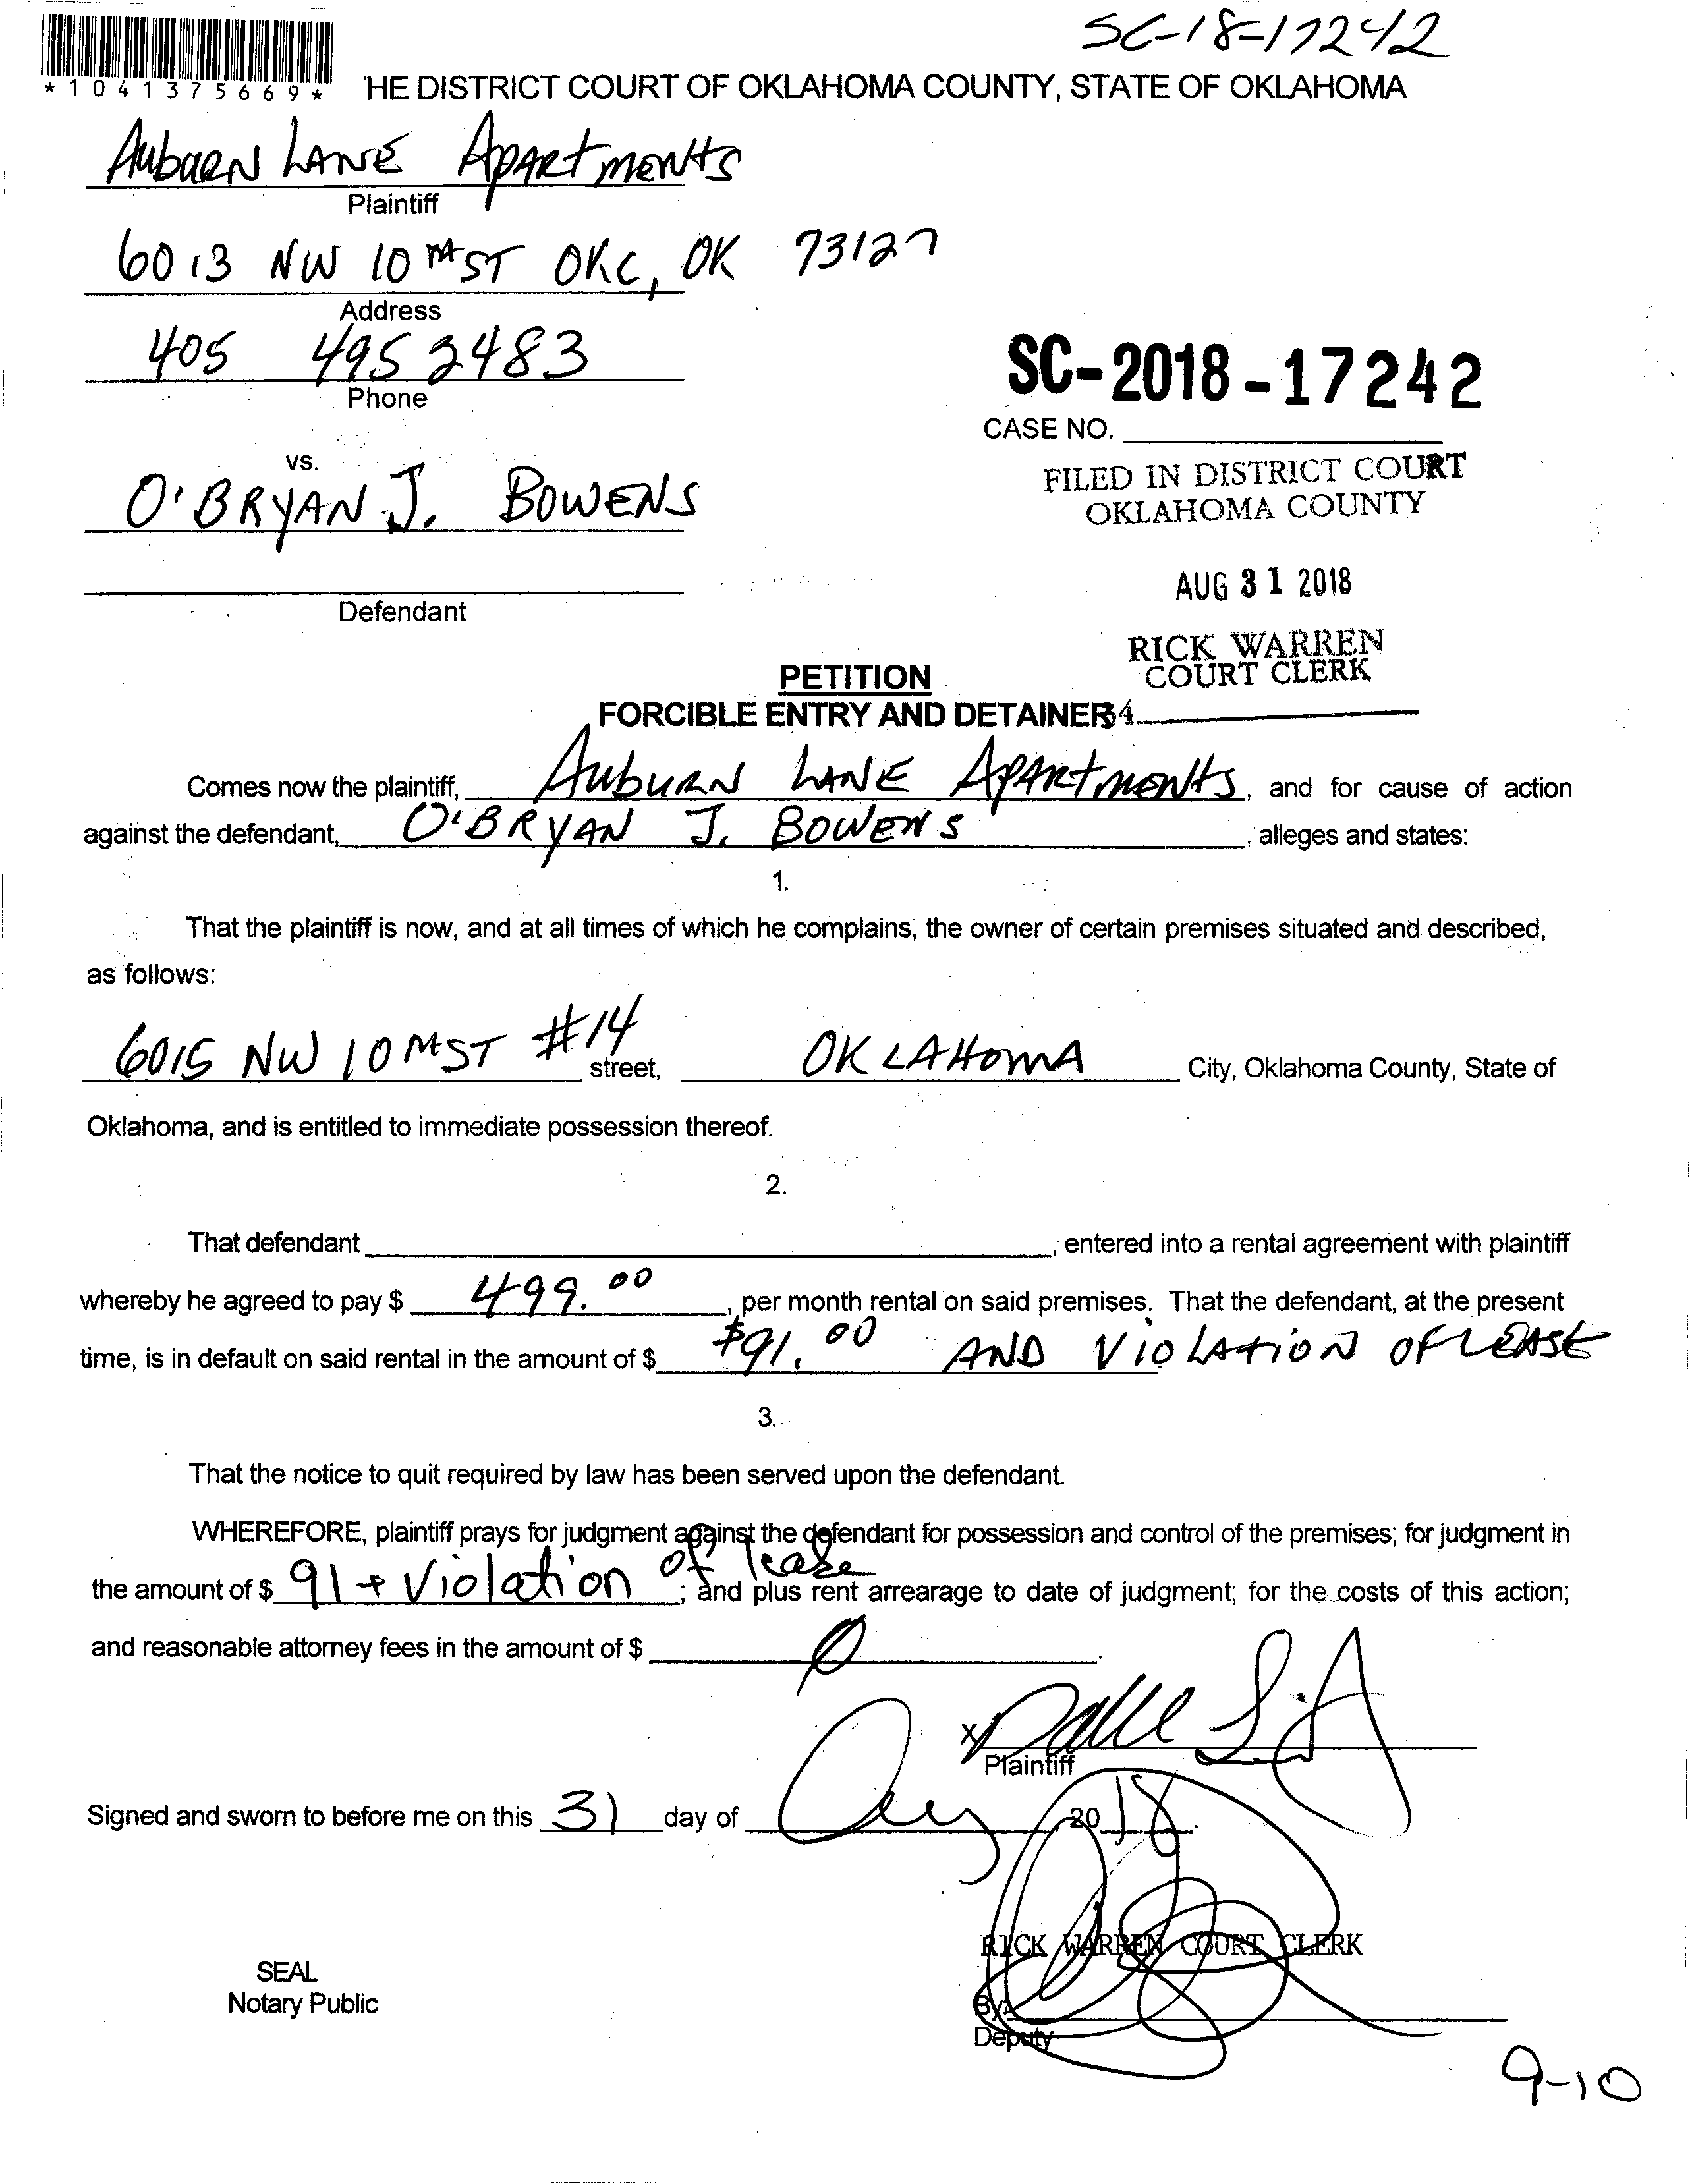 SC-18-17242
*1041375669*
HE DISTRICT COURT OF OKLAHOMA COUNTY, STATE OF OKLAHOMA
Auburn LANE Apartments
Plaintiff
6013 NW 10 TH ST OKC, OK 73127
Address
405 495 2483
Phone
SC-2018-17242
CASE NO.
FILED IN DISTRICT COURT
OKLAHOMA COUNTY
vs.
O'BRYAN J. BOWENS
AUG 31 2018
Defendant
RICK WARREN
COURT CLERK
PETITION
FORCIBLE ENTRY AND DETAINER
Comes now the plaintiff, Auburn LANE Apartments, and for cause of action
against the defendant, O'BRYAN J. BOWENS, alleges and states:
1.
That the plaintiff is now, and at all times of which he complains, the owner of certain premises situated and described,
as follows:
6015 NW 10 TH ST #14 street, OKLAHOMA City, Oklahoma County, State of
Oklahoma, and is entitled to immediate possession thereof.
2.
That defendant, entered into a rental agreement with plaintiff
whereby he agreed to pay $ 499.00, per month rental on said premises. That the defendant, at the present
time, is in default on said rental in the amount of $ $91.00 AND VIOLATION OF LEASE
3.
That the notice to quit required by law has been served upon the defendant.
WHEREFORE, plaintiff prays for judgment against the defendant for possession and control of the premises; for judgment in
the amount of $ 91 + Violation of lease; and plus rent arrearage to date of judgment; for the costs of this action;
and reasonable attorney fees in the amount of $ 0.
X
Plaintiff
Signed and sworn to before me on this 31 day of Aug, 2018.
RICK WARREN COURT CLERK
SEAL
Notary Public
By
Deputy
9-10